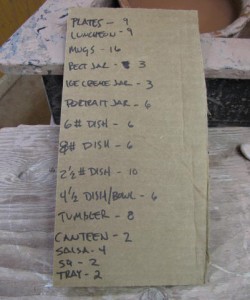 PLATES - 9
LUNCHEON - 9
MUGS - 16
RECT JAR - 3
ICE CREAM JAR - 3
PORTRAIT JAR - 6
6# DISH - 6
8# DISH - 6
2½# DISH - 10
4½ DISH/BOWL - 6
TUMBLER - 8
CANTEEN - 2
SALSA - 4
SQ - 2
TRAY - 2